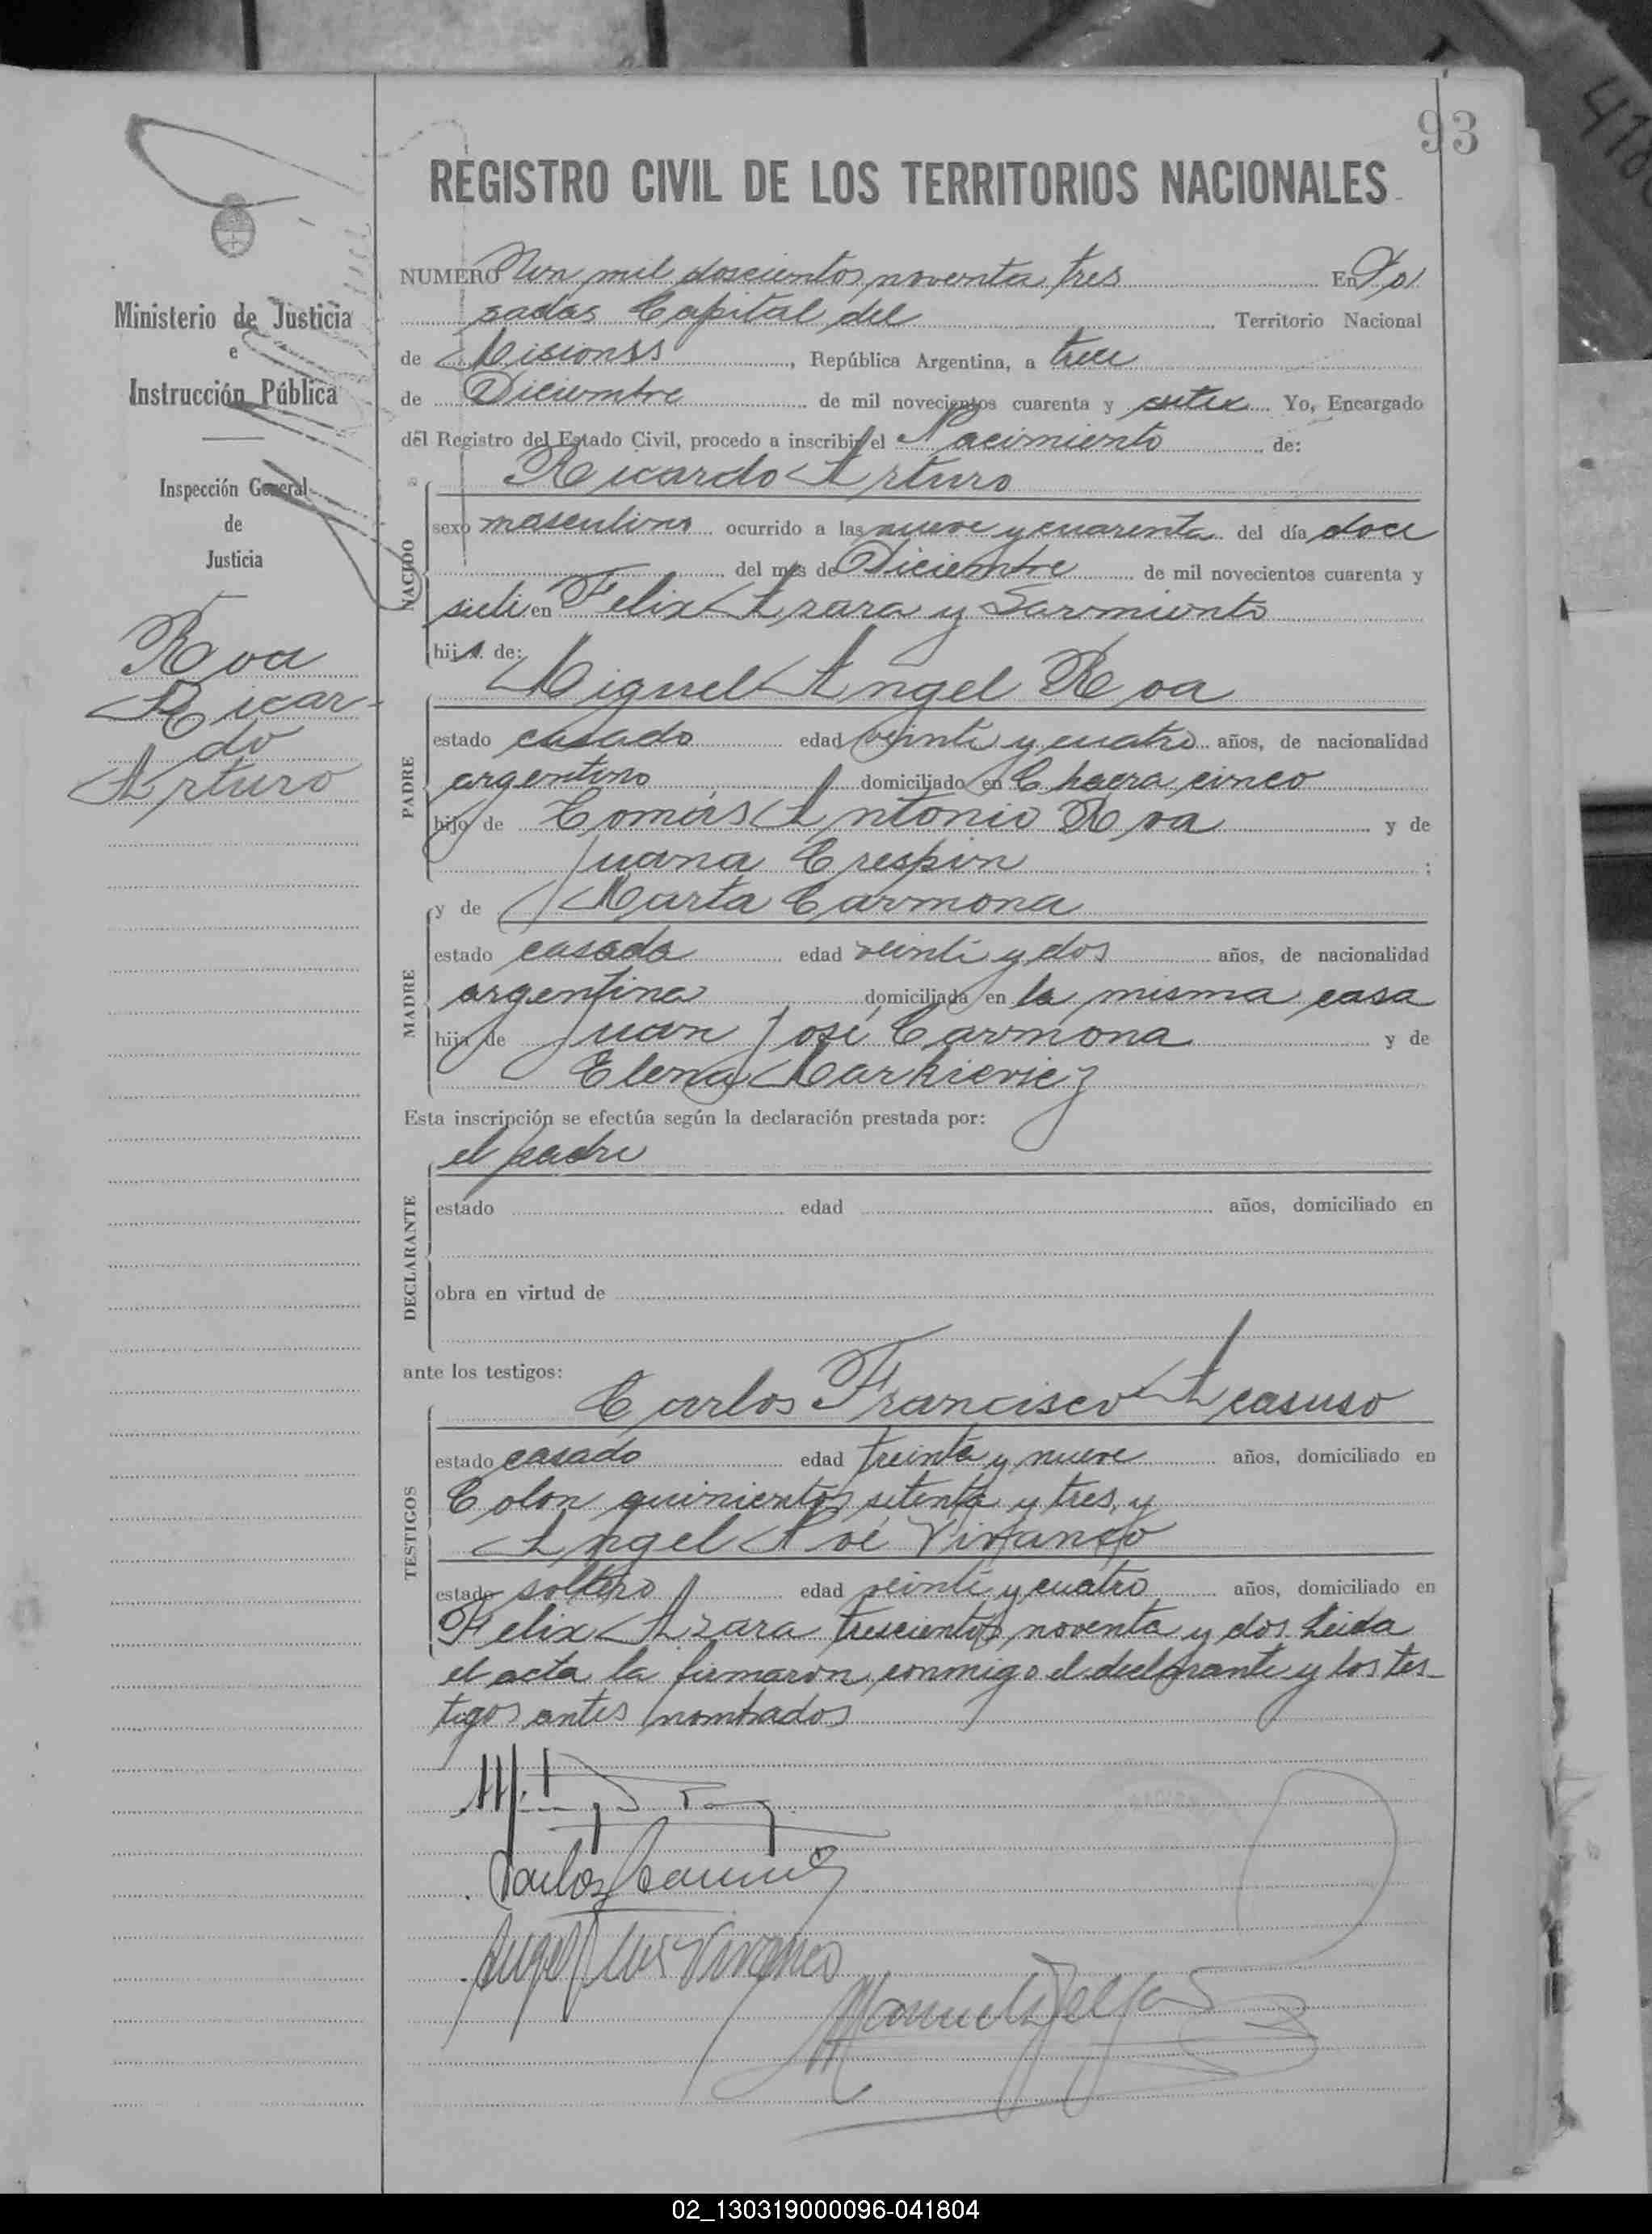 93
REGISTRO CIVIL DE LOS TERRITORIOS NACIONALES
Ministerio de Justicia
e
Instrucción Pública
Inspección General
de
Justicia
Roa
Ricar-
do
Arturo
NUMERO Un mil doscientos noventa tres En Po
sadas Capital del Territorio Nacional
de Misiones, República Argentina, a trece
de Diciembre de mil novecientos cuarenta y siete Yo, Encargado
del Registro del Estado Civil, procedo a inscribir el Nacimiento de:
Ricardo Arturo
NACIDO
sexo masculino ocurrido a las nueve y cuarenta del día doce
del mes de Diciembre de mil novecientos cuarenta y
siete en Felix Azara y Sarmiento
hijo de:
Miguel Angel Roa
PADRE
estado casado edad veinti y cuatro años, de nacionalidad
argentino domiciliado en Chacra cinco
hijo de Tomás Antonio Roa y de
Juana Crespin ;
y de Marta Carmona
MADRE
estado casada edad veinti y dos años, de nacionalidad
argentina domiciliada en la misma casa
hija de Juan José Carmona y de
Elena Markievicz
Esta inscripción se efectúa según la declaración prestada por:
el padre
DECLARANTE
estado edad años, domiciliado en
obra en virtud de
ante los testigos:
Carlos Francisco Acasuso
TESTIGOS
estado casado edad treinta y nueve años, domiciliado en
Colon quinientos setenta y tres, y
Angel Vivanco
estado soltero edad veinti y cuatro años, domiciliado en
Felix Azara trescientos noventa y dos. Leida
el acta la firmaron conmigo el declarante y los tes-
tigos antes nombrados
Carlos
Angel Vivanco
Manuel
02_130319000096-041804